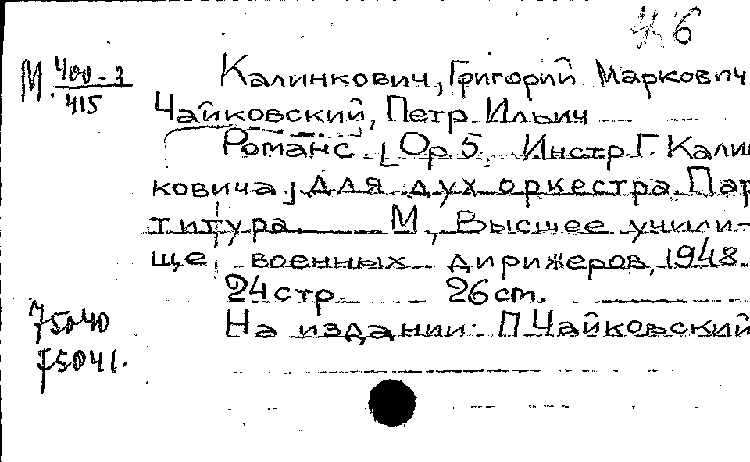 М 400-3
415
Калинкович, Григорий Маркович
Чайковский, Петр Ильич
Романс [Ор 5. Инстр Г. Калин
ковича] для дух оркестра. Пар
титура. М, Высшее учили-
ще военных дирижеров, 1948.
24 стр. 26 ст.
На издании: П. Чайковский
75040
75041.